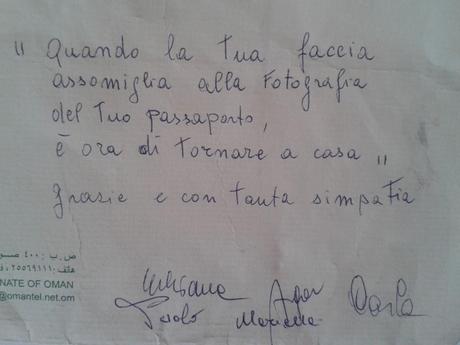 " Quando la tua faccia
assomiglia alla fotografia
del tuo passaporto,
è ora di tornare a casa "
grazie e con tanta simpatia
ص . ب : ٤٠٠
هاتف : ٢٥٥٦٩١١١٠
NATE OF OMAN
@omantel.net.om
Paolo Carla